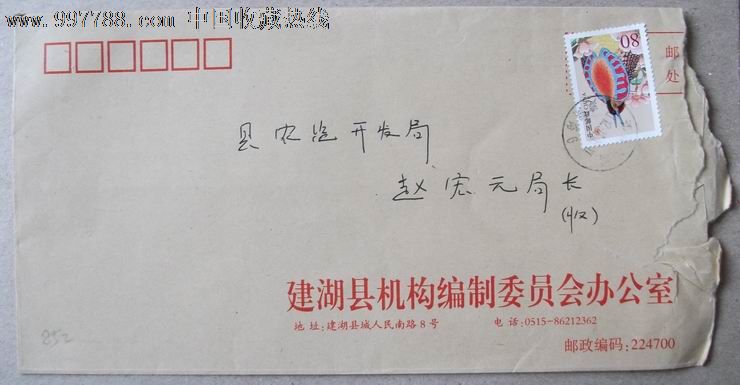 www.997788.com 中国收藏热线
80
邮
处
县农资开发局
赵宏元局长
(收)
建湖县机构编制委员会办公室
地址:建湖县城人民南路8号 电话:0515-86212362
邮政编码:224700
852